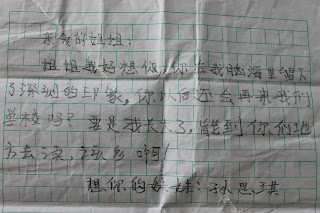 亲爱的姐姐：
姐姐我好想你，你在我脑海里留下
了深刻的印象，你以后还会再来我们
学校吗？要是我长大了，能到你们地
方去读，该多好啊！
想你的妹妹：孙思琪